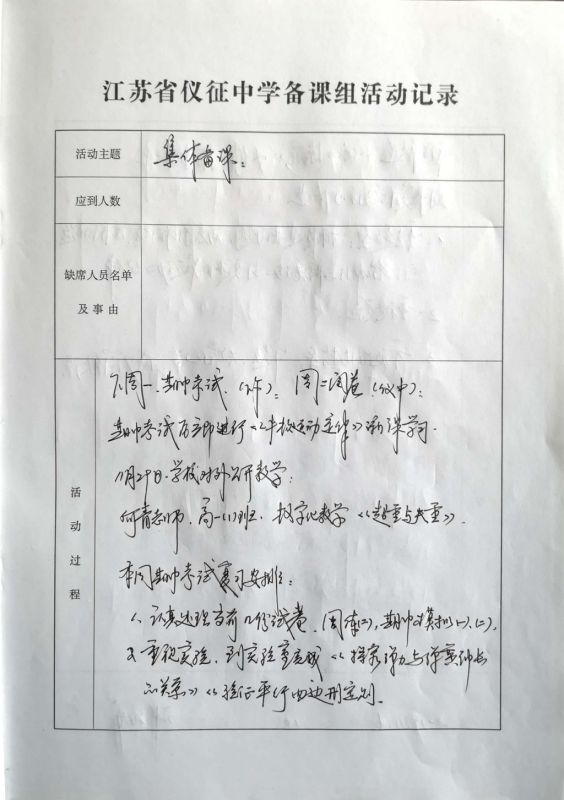 江苏省仪征中学备课组活动记录
活动主题
集体备课：
应到人数
缺席人员名单
及事由
活动过程
下周一.期中考试.(下午)；周二阅卷(仪中)；
期中考试后立即进行《牛顿运动定律》新课学习.
11月29日.学校对外公开教学：
何青老师.高一(1)班.数字化教学《超重与失重》.
本周期中考试复习安排：
1、认真处理当前几份试卷.周练(二),期中模拟(一)、(二).
2、重视实验.到实验室完成《探究弹力与弹簧伸长
的关系》《验证平行四边形定则.